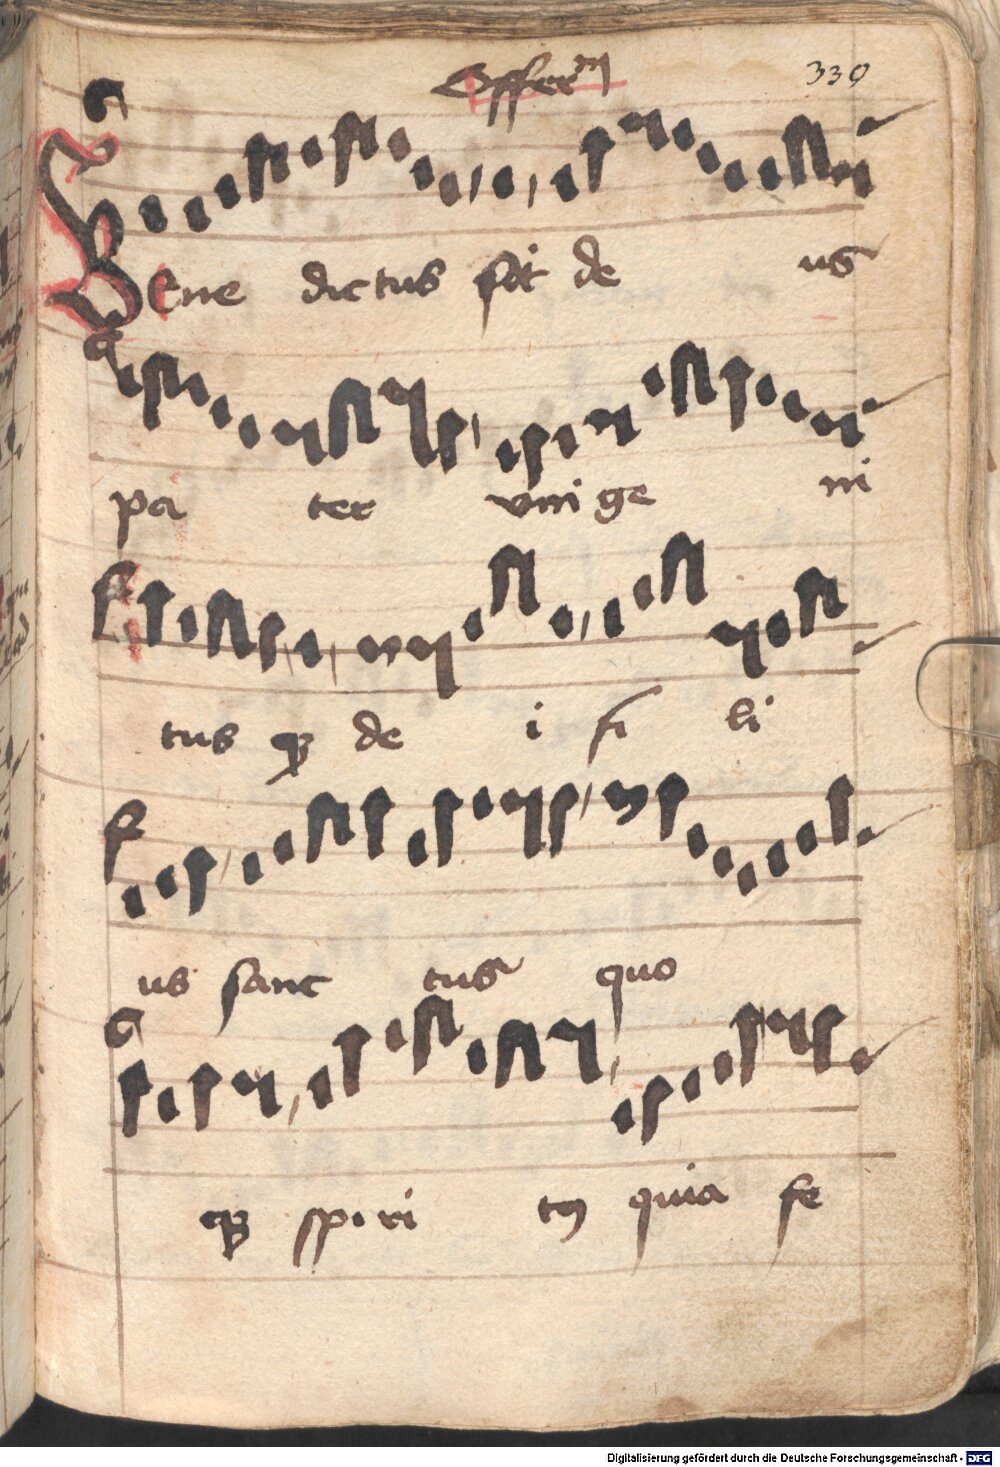 Offerm 330
Bene dictus sit de us
pa ter vni ge ni
tus qȝ de i fi li
us sanc tus quo
qȝ spi ri tꝯ quia fe
Digitalisierung gefördert durch die Deutsche Forschungsgemeinschaft - DFG